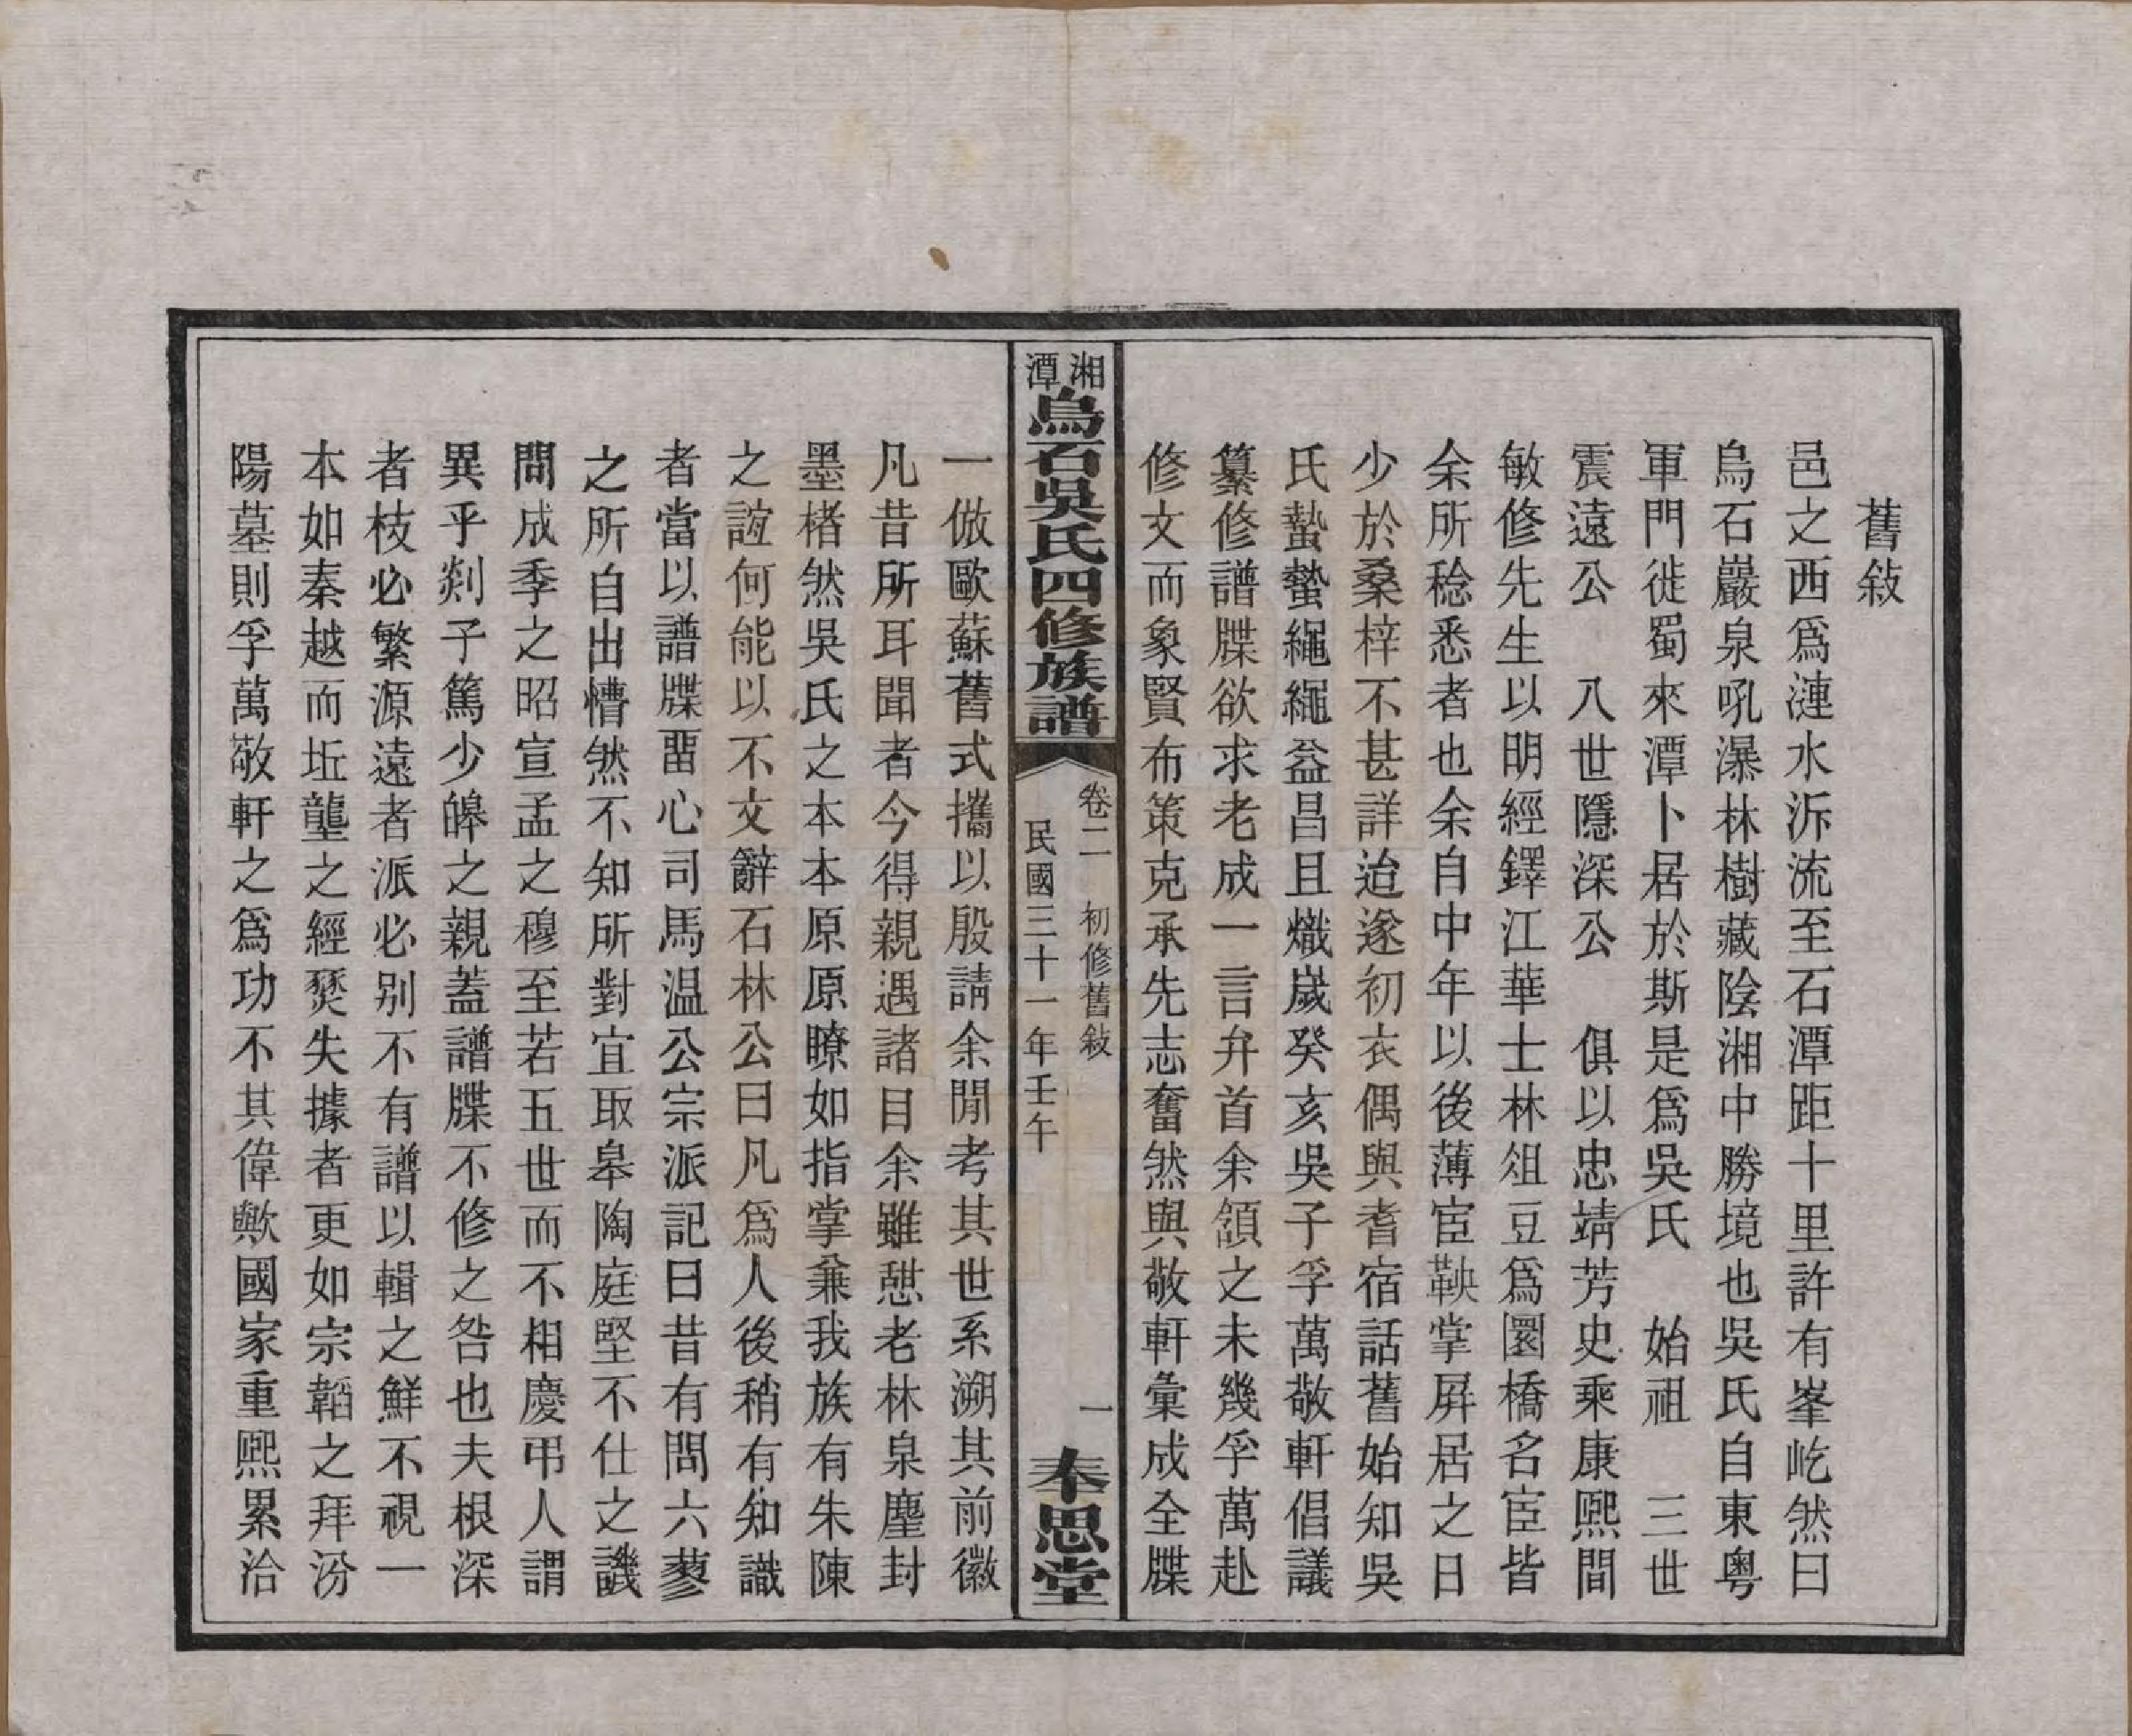 舊敍
邑之西爲漣水泝流至石潭距十里許有峯屹然曰
烏石巖泉吼瀑林樹藏陰湘中勝境也吳氏自東粵
軍門徙蜀來潭卜居於斯是爲吳氏　始祖　三世
震遠公　八世隱深公　俱以忠靖芳史乘康熙間
敏修先生以明經鐸江華士林俎豆爲圜橋名宦皆
余所稔悉者也余自中年以後薄宦鞅掌屛居之日
少於桑梓不甚詳迨遂初衣偶與耆宿話舊始知吳
氏蟄蟄繩繩益昌且熾嵗癸亥吳子孚萬敬軒倡議
纂修譜牒欲求老成一言弁首余頷之未幾孚萬赴
修文而象賢布策克承先志奮然與敬軒彙成全牒
湘潭烏石吳氏四修族譜　卷二　初修舊敍　一
民國三十一年壬午　奉思堂
一倣歐蘇舊式攜以殷請余閒考其世系溯其前徽
凡昔所耳聞者今得親遇諸目余雖憇老林泉塵封
墨楮然吳氏之本本原原瞭如指掌兼我族有朱陳
之誼何能以不文辭石林公曰凡爲人後稍有知識
者當以譜牒畱心司馬温公宗派記曰昔有問六蓼
之所自出懵然不知所對宜取皋陶庭堅不仕之譏
問成季之昭宣孟之穆至若五世而不相慶弔人謂
異乎剡子篤少皞之親蓋譜牒不修之咎也夫根深
者枝必繁源遠者派必别不有譜以輯之鮮不視一
本如秦越而坵壟之經燹失據者更如宗韜之拜汾
陽墓則孚萬敬軒之爲功不其偉歟國家重熙累洽